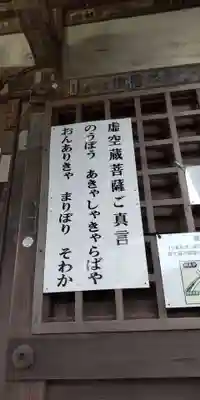 虚空蔵菩薩ご真言
のうぼう あきゃしゃきゃらばや
おんありきゃ まりぼり そわか